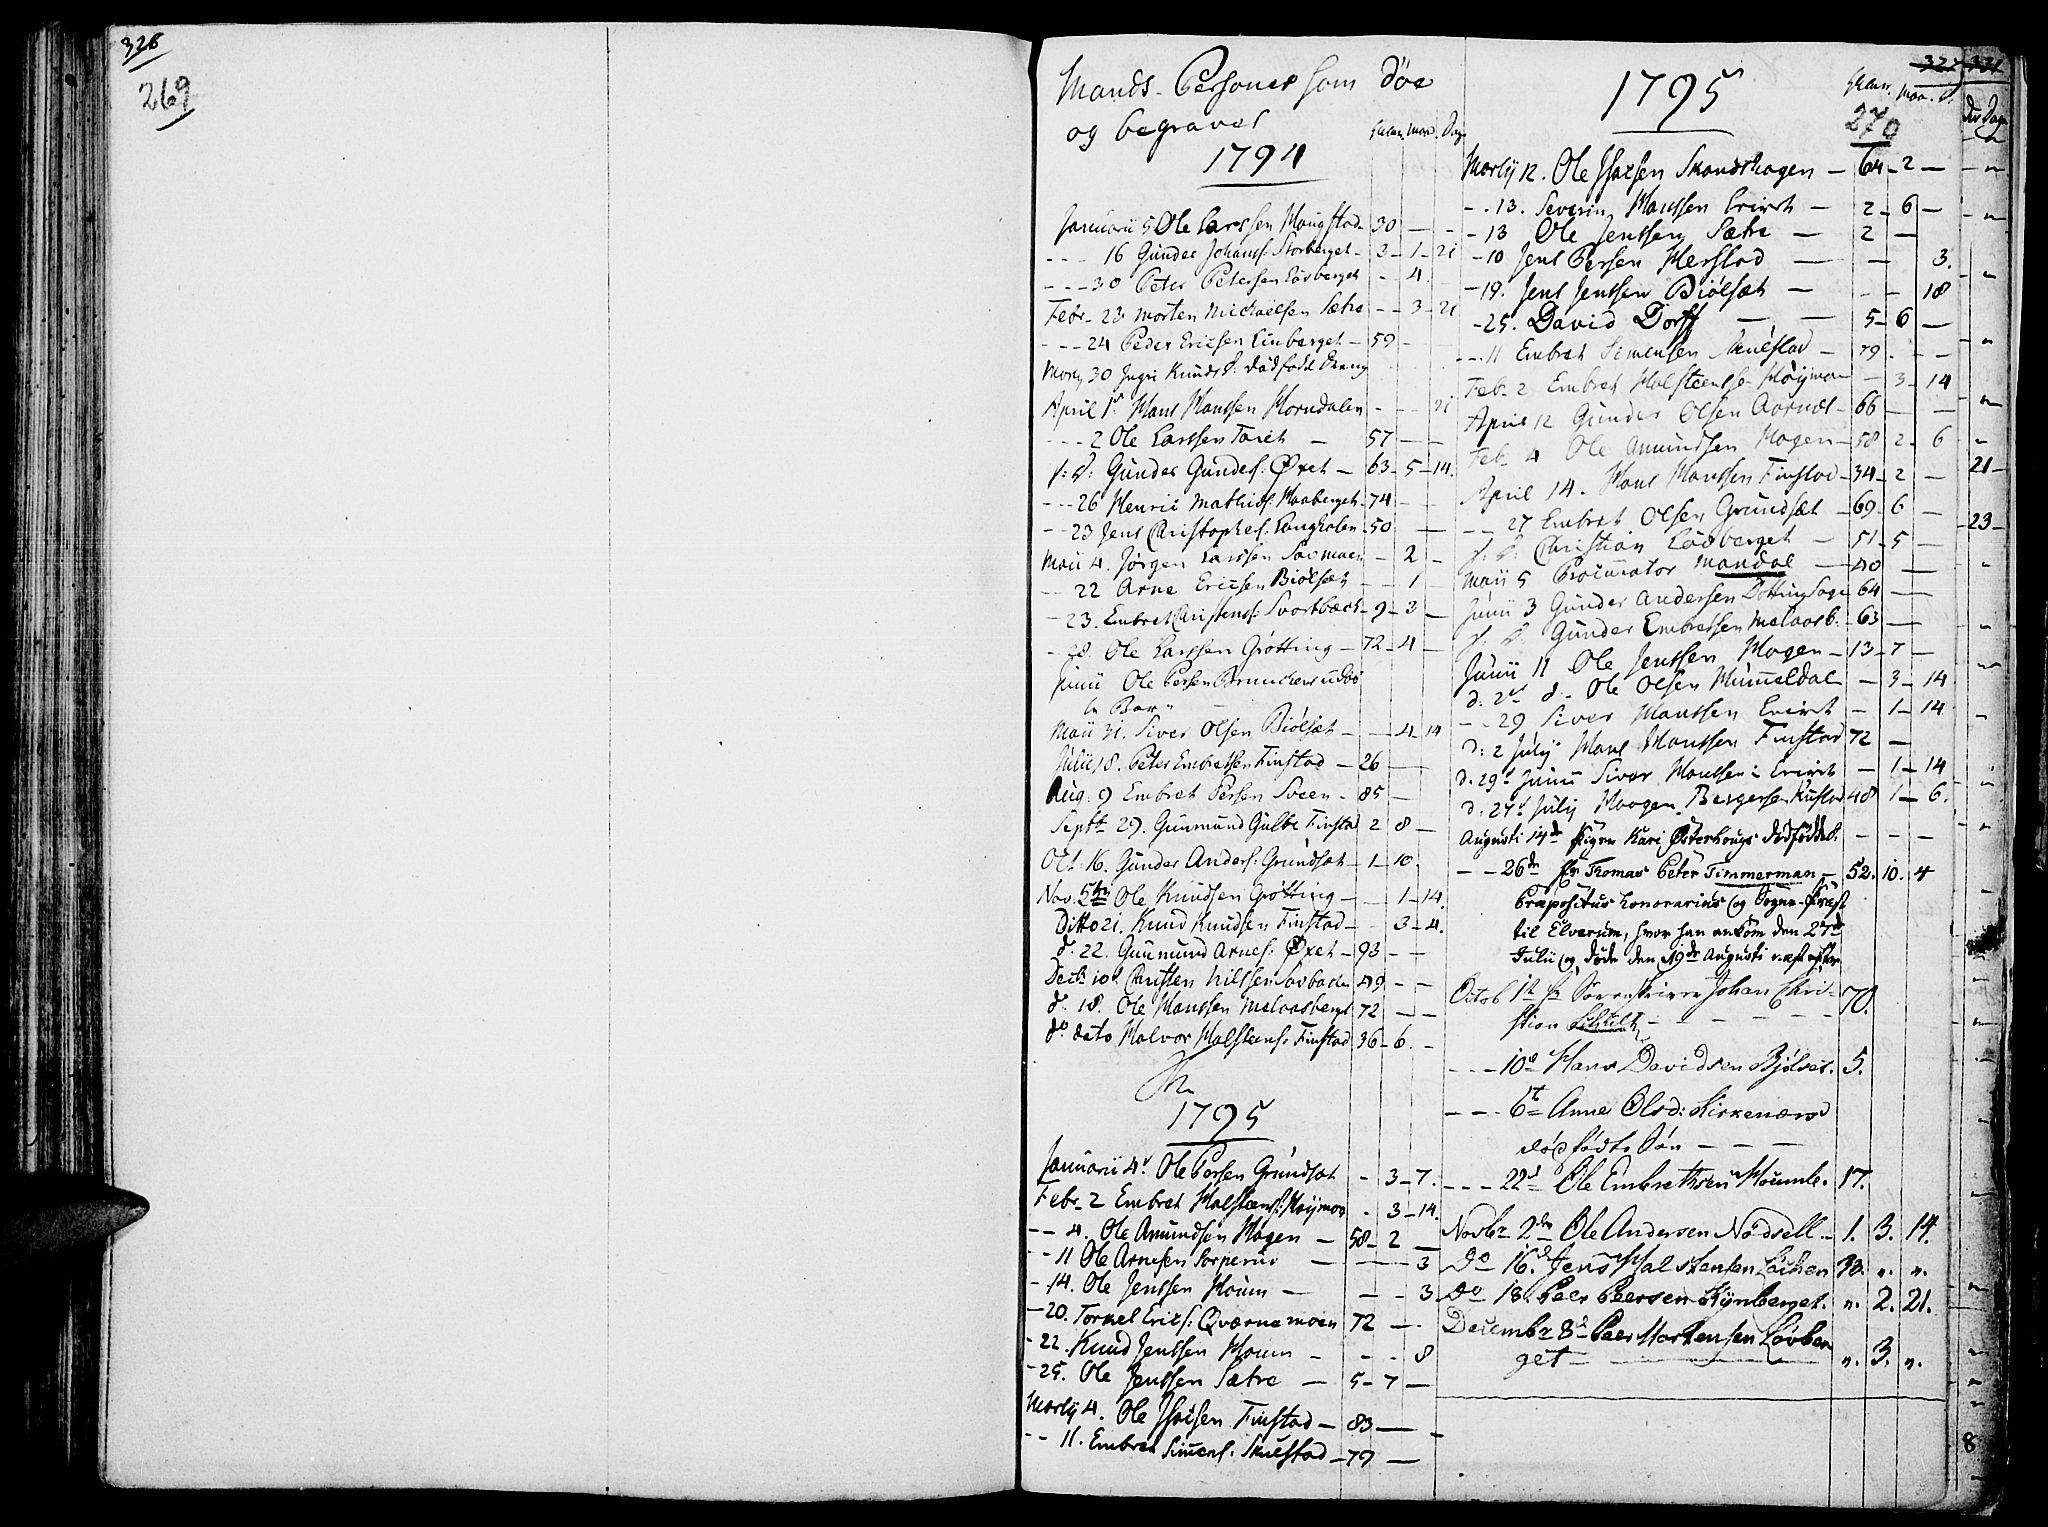 328
269
Mands-Personer som döe
og begravet
1794
Januarii 5 Ole Larssen Haugstad 30
--- 16 Gunder Johans: Storberget - 3 - 1 - 21
--- 30 Peter Petersen Lövberget - 4
Febr- 23 Morten Michaelsen Sætre - - 3 - 21
--- 24 Peder Ericsen Linberget - 59
30 Ingri Knuds d: dödfödd Dreng
April 1 Hans Hanssen Horndalen - - 21
--- 2 Ole Larssen - 57
Gunder Gunders: Öxet - 63 - 5 - 14.
--- 26 Henric Mathies: Haaberget - 74
-- 23 Jens Christophs: Langholen - 50
Maii 4. Jörgen Larssen - 2 -
-- 22 Arne Ericsen Biölset - - 1 -
- 23. Embret Christens: Svartbæck - 9 - 3 -
- 28. Ole Larssen Grötting - 72 - 4 -
Junii Ole Persen
Maii 31. Siver Olsen Biölset - - 4 - 14
Julii 18. Peter Embretsen Finstad - 26
Aug. 9 Embret Persen Sveen - 85 -
Septr 29. Gunmund Gulbr Finstad 2 8 -
Oct. 16. Gunder Anders: Grundset - 1 - 10.
Nov. 5 Ole Knudsen Grötting - 1 - 14.
Ditto 21. Knud Knudsen Finstad - 3 - 4.
d. 22. Gunmund Arnes: Öxet - 93 - -
Decb. 10 Christen Nilssen 49 - -
d. 18. Ole Hanssen Melaasberget 72 - -
do dato Halvor Halsteens: Finstad 36 - 6. -
1795
Januarii 4 Ole Persen Grundset - 3 - 7.
Febr. 2 Embret Halsteens: Höymoe - 3 - 14.
-- 4. Ole Amundsen Hagen - 58 - 2
-- 11 Ole Arnesen Sorperud - 3
- 14. Ole Jenssen Houm - - - 3
- 20. Torkel Erics: Qværnemoen 72 -
- 22. Knud Jenssen Houm - - - 8
- 25. Ole Jenssen Sætre - 5 - 7 -
Martij 4. Ole Isacsen Finstad - 83 -
-- 11. Embret Simens: Skulstad - 79 -
1795
270
Martij 12. Ole Isacsen Skandshagen - 64 - 2 -
- . 13. Severin Hanssen - 2 - 6 -
- 13 Ole Jenssen Sætre - 2 -
- 10 Jens Persen Herstad - - 3.
- 19. Jens Jenssen Biölset - - - 18
- 25. David Dorff - 5 - 6 -
-- 11 Embret Simensen Skulstad - 79 - - -
Feb. 2 Embret Halsteens: Höijmoe - 3 - 14
April 12 Gunder Olsen Aarnes - 66 - -
Feb. 4 Ole Amundsen Hagen - 58 2 - 6
April 14. Hans Hanssen Finstad - 34 - 2 -
-- 27 Embret Olsen Grundset - 69 - 6 -
Christian Lövberget - 51 - 5 -
Maii 5 Procurator Mandal - 40 -
Junii 3 Gunder Andersen 64 -
Gunder Embretsen Melaasb. - 63 -
Junii 11 Ole Jenssen Hagen - 13 - 7 -
d. 2 d. Ole Olsen Hummeldal - 3 - 14
-- 29 Siver Hanssen - 1 - 14
d: 2 Julij Hans Hanssen Finstad 72 -
d. 29 Junii Siver Hanssen - 1 - 14
d. 27 Julij Haagen Bergersen 48 1 - 6.
Augusti 14de Pigen Kari Österhougs dödföddd. - - -
-- 26de Hr Thomas Peter Timmerman - 52. 10. 4
Præpositus honorarius og Sogne-Præst
til Elverum, hvor han ankom den 27de
Julii og döde den 19de Augusti næst efter
Octob 1te Hr Sorenskriver Johan Chri- 70.
stian Schultz - - - -
--- 10de Hans Davidsen Bjölset. 5.
--- 6te Anne Olsd: Kirkenæs
dödfödte Sön - - -
--- 22de Ole Embrethsen Houmb. 17.
Novbr 2den Ole Andersen Nödsell - 1. 3. 14.
do 16de Jens Halstensen 90. ". ".
do 18de Peer Peersen Kynberget. ". 2. 21.
Decembr 8de Peer Mortensen Lövber
get - ". 3. ".
21
23
8